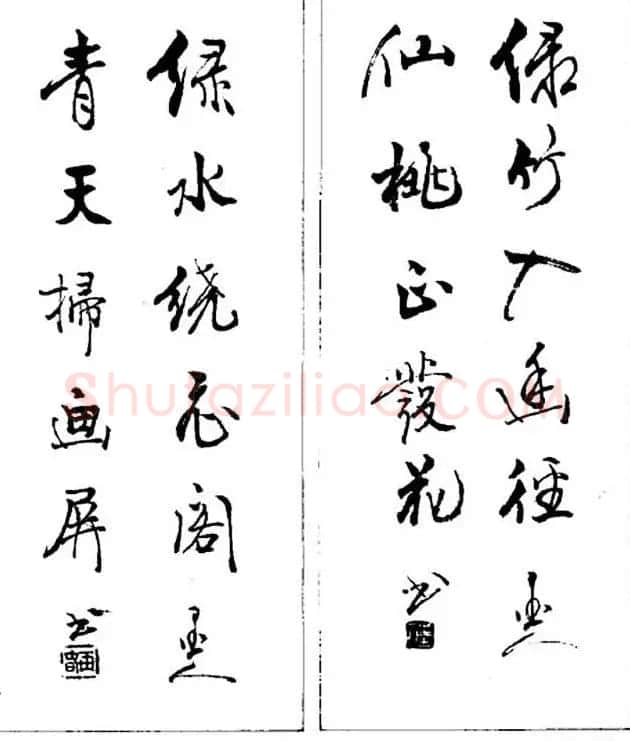 绿竹入幽径
仙桃正發花
书
绿水绕阁
青天掃画屏
书
Shufaziliao.COM